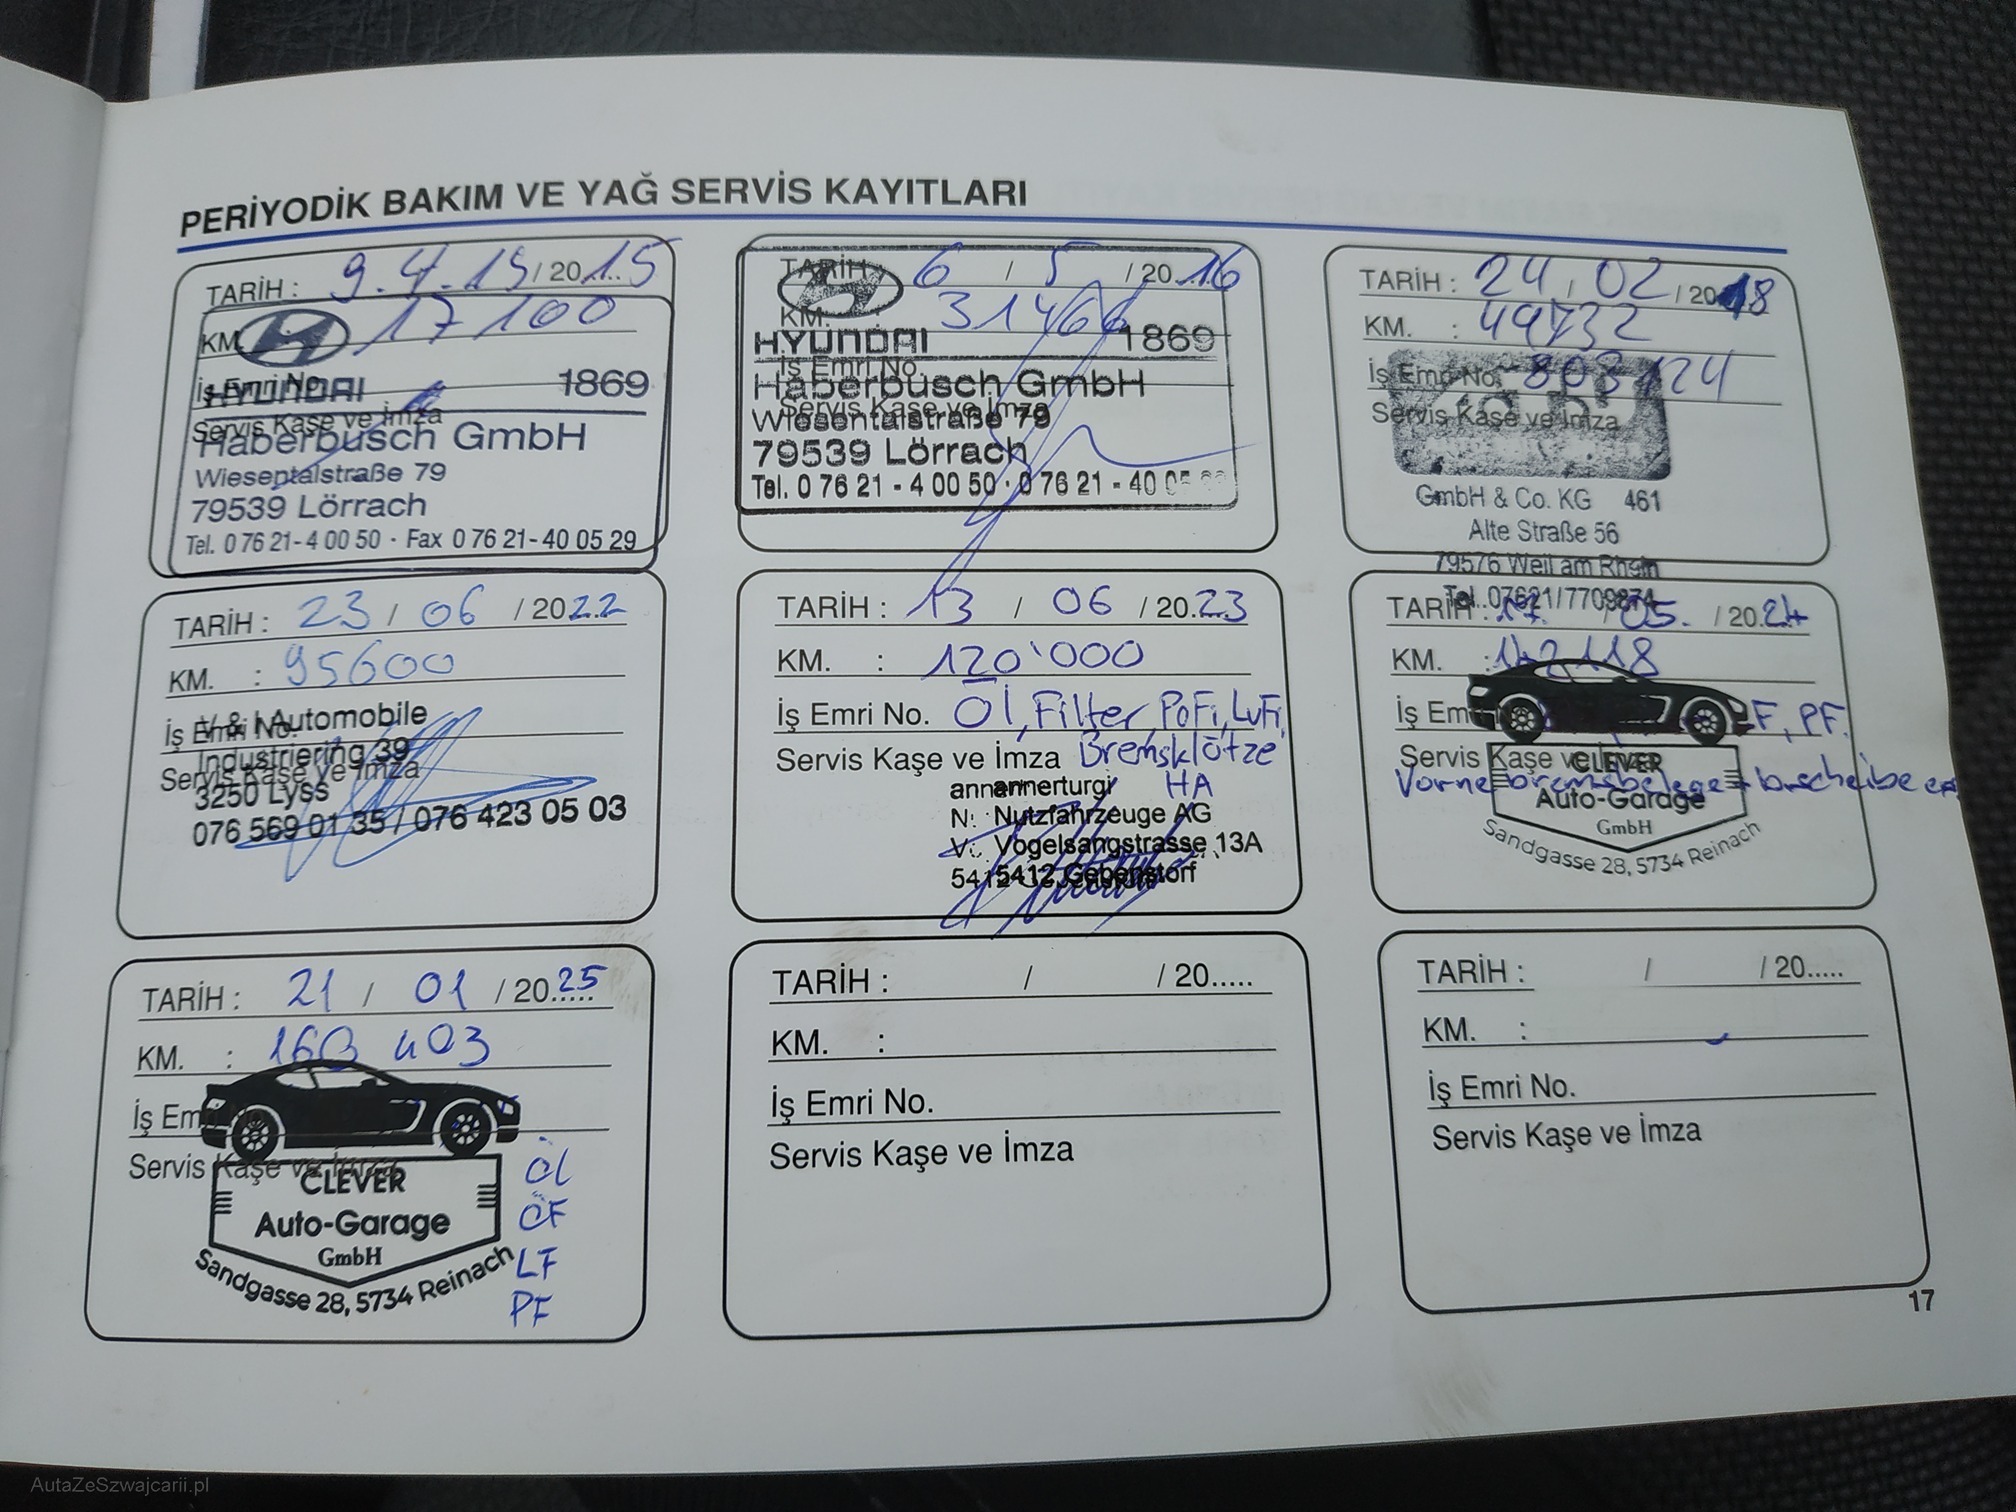 PERİYODİK BAKIM VE YAĞ SERVİS KAYITLARI
TARİH : 9.4.15/2015
KM. 17100
İş Emri No.
HYUNDAI 1869
Servis Kaşe ve İmza
Haberbusch GmbH
Wiesentalstraße 79
79539 Lörrach
Tel. 0 76 21-4 00 50 · Fax 0 76 21-40 05 29
TARİH 6 / 5 / 2016
KM. 31466
HYUNDAI 1869
İş Emri No.
Haberbusch GmbH
Servis Kaşe ve İmza
Wiesentalstraße 79
79539 Lörrach
Tel. 0 76 21 - 4 00 50 · 0 76 21 - 40 05
TARİH : 24 / 02 / 2018
KM. : 49732
İş Emri No. 803124
Servis Kaşe ve İmza
GmbH & Co. KG 461
Alte Straße 56
79576 Weil am Rhein
Tel. 07621/7709874
TARİH : 23 / 06 / 2022
KM. : 95600
İş Emri No.
V & I Automobile
Industriering 39
Servis Kaşe ve İmza
3250 Lyss
076 569 01 35 / 076 423 05 03
TARİH : 13 / 06 / 2023
KM. : 120'000
İş Emri No. Öl, Filter, PoFi, LuFi,
Servis Kaşe ve İmza Bremsklötze
HA
Nutzfahrzeuge AG
Vogelsangstrasse 13A
5412 Gebenstorf
TARİH : 17. / 05. / 2024
KM. : 142118
İş Em F, PF.
Servis Kaşe ve İmza
CLEVER
Vorne bremsbelege + b.scheibe
Auto-Garage
GmbH
Sandgasse 28, 5734 Reinach
TARİH : 21 / 01 / 2025
KM. : 160 403
İş Em
Servis Kaşe ve İmza
CLEVER
Auto-Garage
GmbH
Sandgasse 28, 5734 Reinach
Öl
ÖF
LF
PF
TARİH : / / 20.....
KM. :
İş Emri No.
Servis Kaşe ve İmza
TARİH : / / 20.....
KM. :
İş Emri No.
Servis Kaşe ve İmza
17
AutaZeSzwajcarii.pl